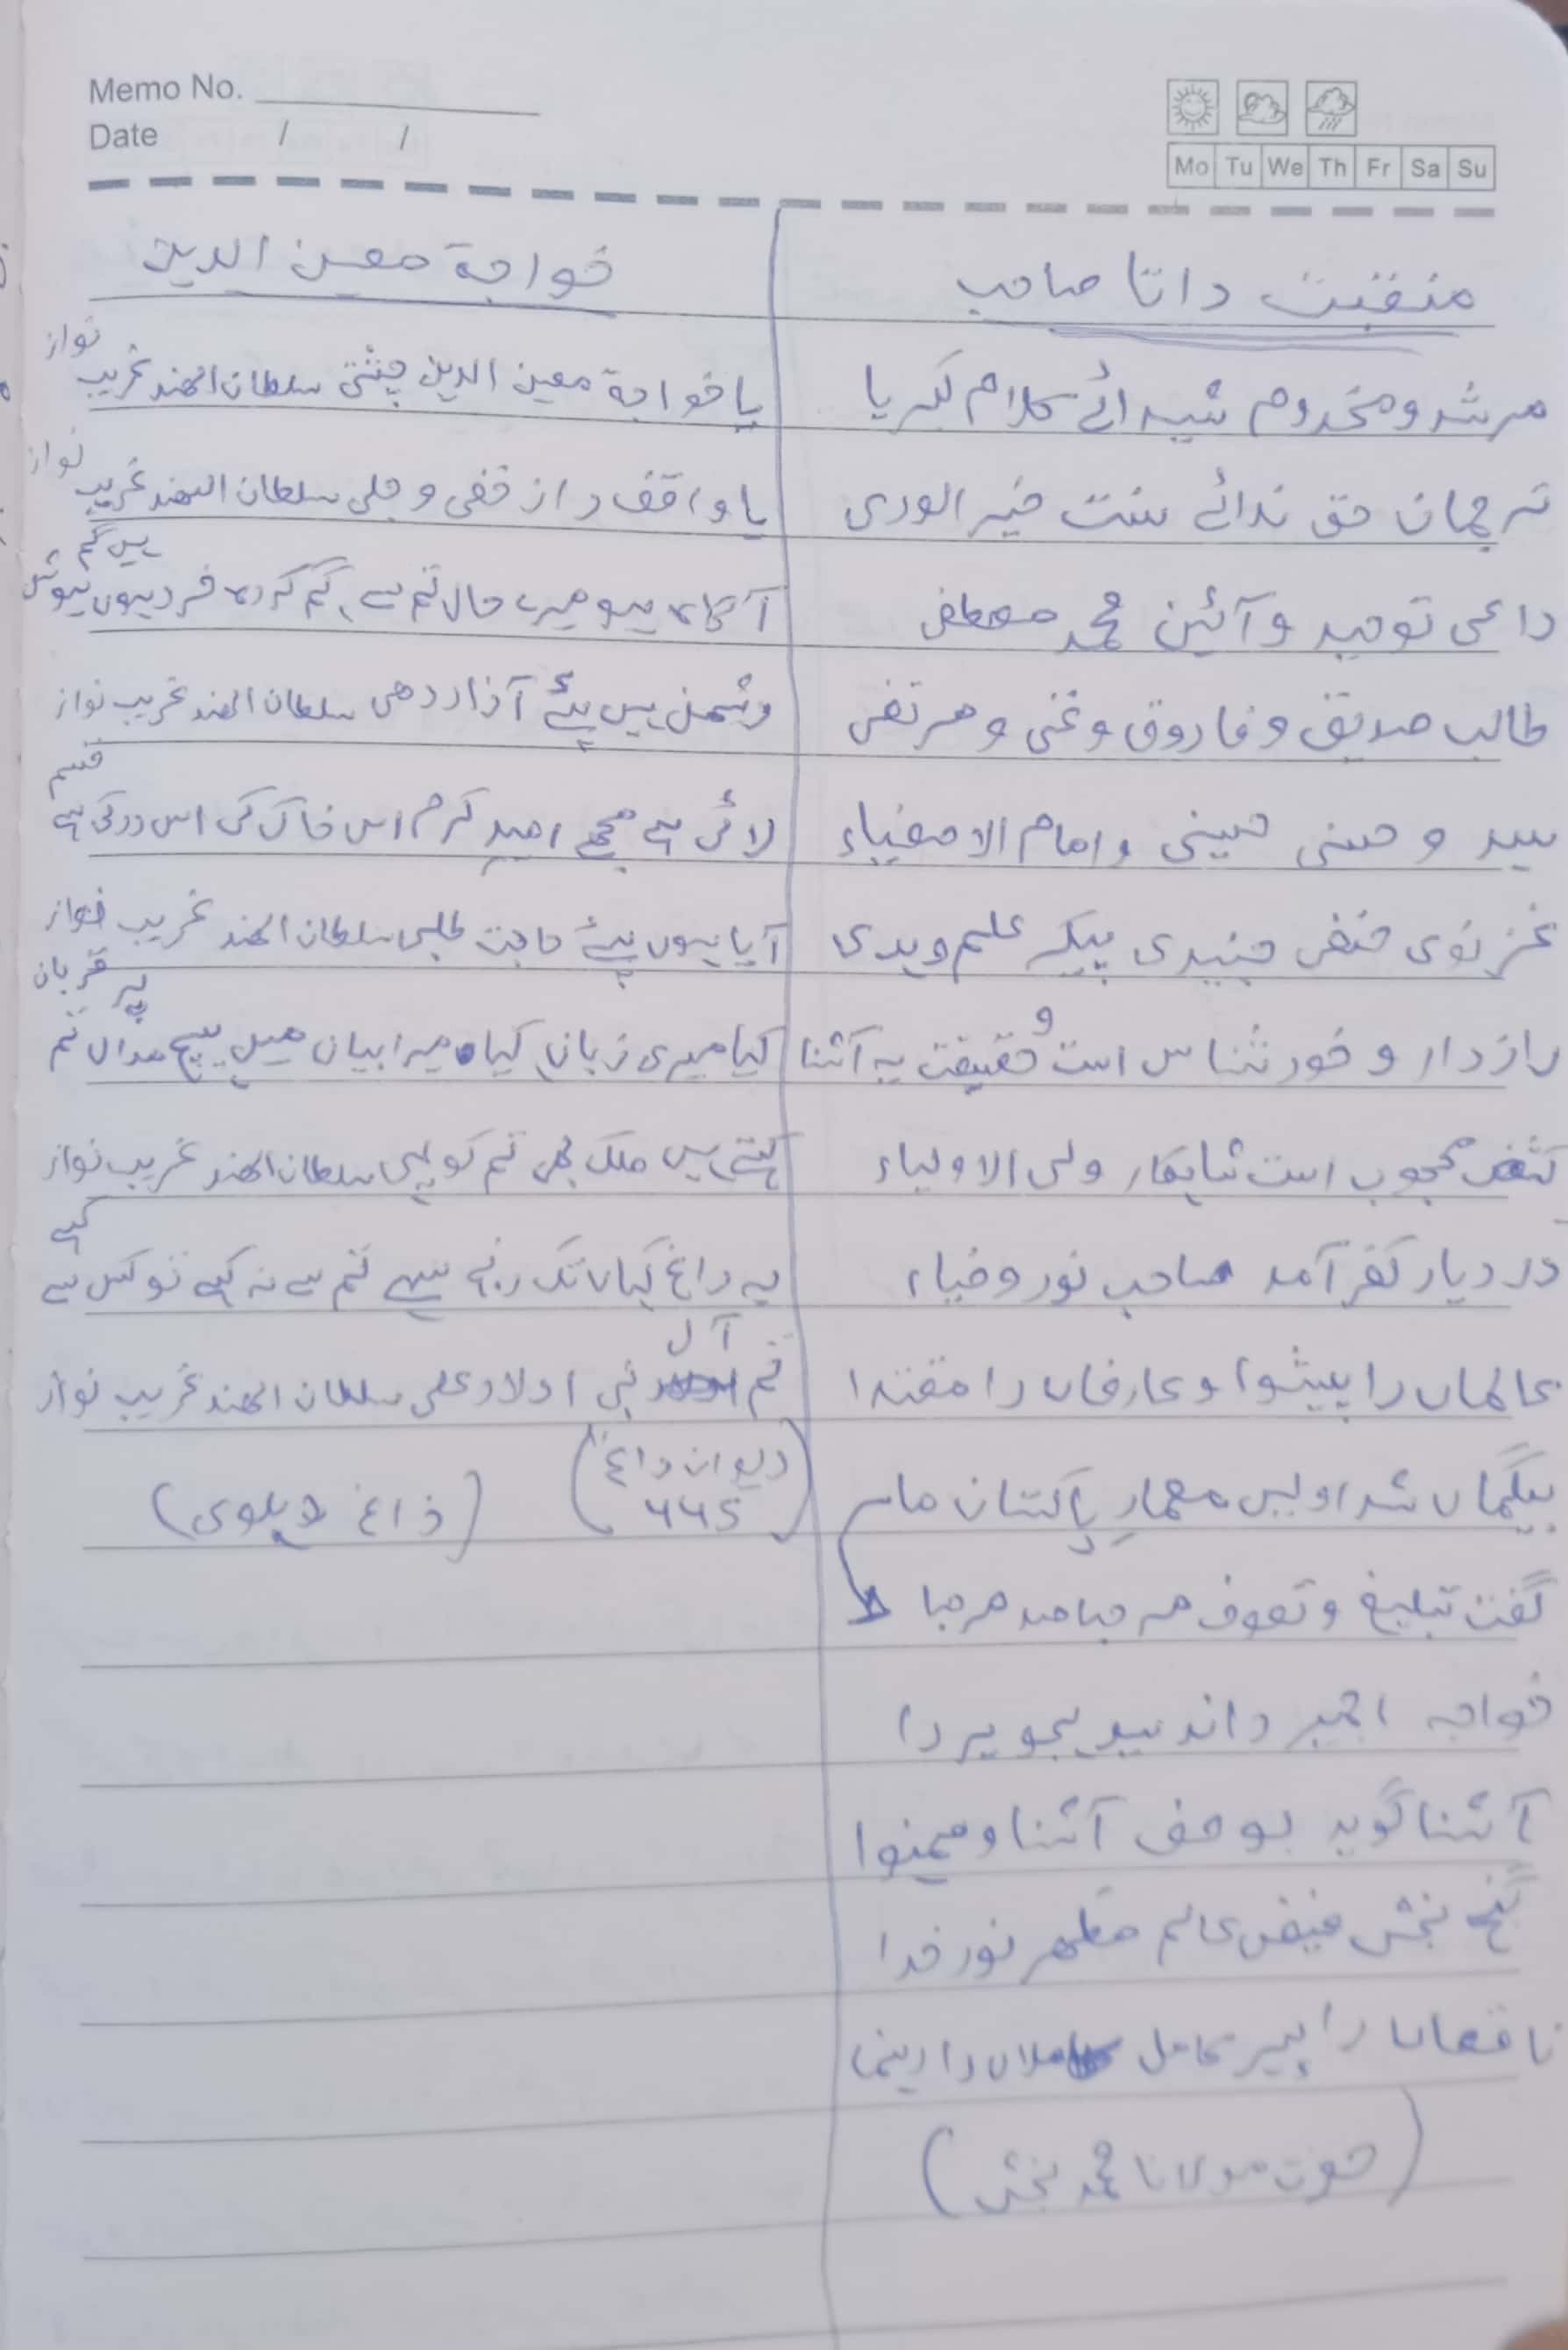 Memo No.
Date / /
Mo Tu We Th Fr Sa Su
منقبت داتا صاحب
مرشد و مخدوم شیدائے کلام کبریا
ترجمان حق ندائے سنت خیر الوری
داعی توحید و آئین محمد مصطفی
طالب صدیق و فاروق و غنی و مرتضی
سید و حسنی حسینی و امام الاصفیاء
غزنوی حنفی جنیدی پیکر علم و ہدی
رازدار و خود شناس است و حقیقت بہ آشنا
کشف محجوب است شاہکار ولی الاولیاء
در دیار کفر آمد صاحب نور و ضیاء
عالماں را پیشوا و عارفاں را مقتدا
بیگماں شد اولیں معمارِ پاکستان ما
گفت تبلیغ و تصوف مرحبا صد مرحبا
خواجہ اجمیر داند سید ہجویر را
آشنا گوید بوصف آشنا و ہمنوا
گنج بخش فیض عالم مظہر نور خدا
ناقصاں را پیر کامل کاملاں را رہنما
(حضرت مولانا محمد بخش)
خواجة معین الدین
یا خواجة معین الدین چشتی سلطان الہند غریب نواز
یا واقف راز خفی و جلی سلطان الہند غریب نواز
آگاہ ہو میرے حال تم سے، گم کردہ خرد ہوں ہوش ہیں گم
دشمن ہیں پئے آزار دھی سلطان الہند غریب نواز
لائی ہے مجھے امیدِ کرم اس خاک کی اس در کی ہے قسم
آیا ہوں پئے حاجت طلبی سلطان الہند غریب نواز
کیا میری زبان کیا میرا بیان میں ہیچ مداں تم پر قربان
کہتے ہیں ملک بھی تم کو یہی سلطان الہند غریب نواز
یہ داغ کہاں تک رنج سہے تم سے نہ کہے تو کس سے کہے
تم آل نبی اولاد علی سلطان الہند غریب نواز
(دیوان داغ
(داغ دہلوی)